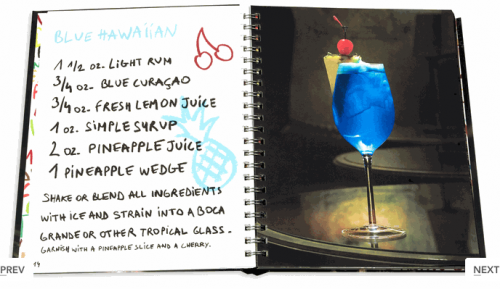 BLUE HAWAiiAN
1 1/2 oz. LIGHT RUM
3/4 oz. BLUE CURAÇAO
3/4 oz. FRESH LEMON JUICE
1 oz. SIMPLE SYRUP
2 oz. PINEAPPLE JUICE
1 PINEAPPLE WEDGE
SHAKE OR BLEND ALL INGREDIENTS
WITH ICE AND STRAIN INTO A BOCA
GRANDE OR OTHER TROPICAL GLASS.
GARNISH WITH A PINEAPPLE SLICE AND A CHERRY.
14
PREV
NEXT